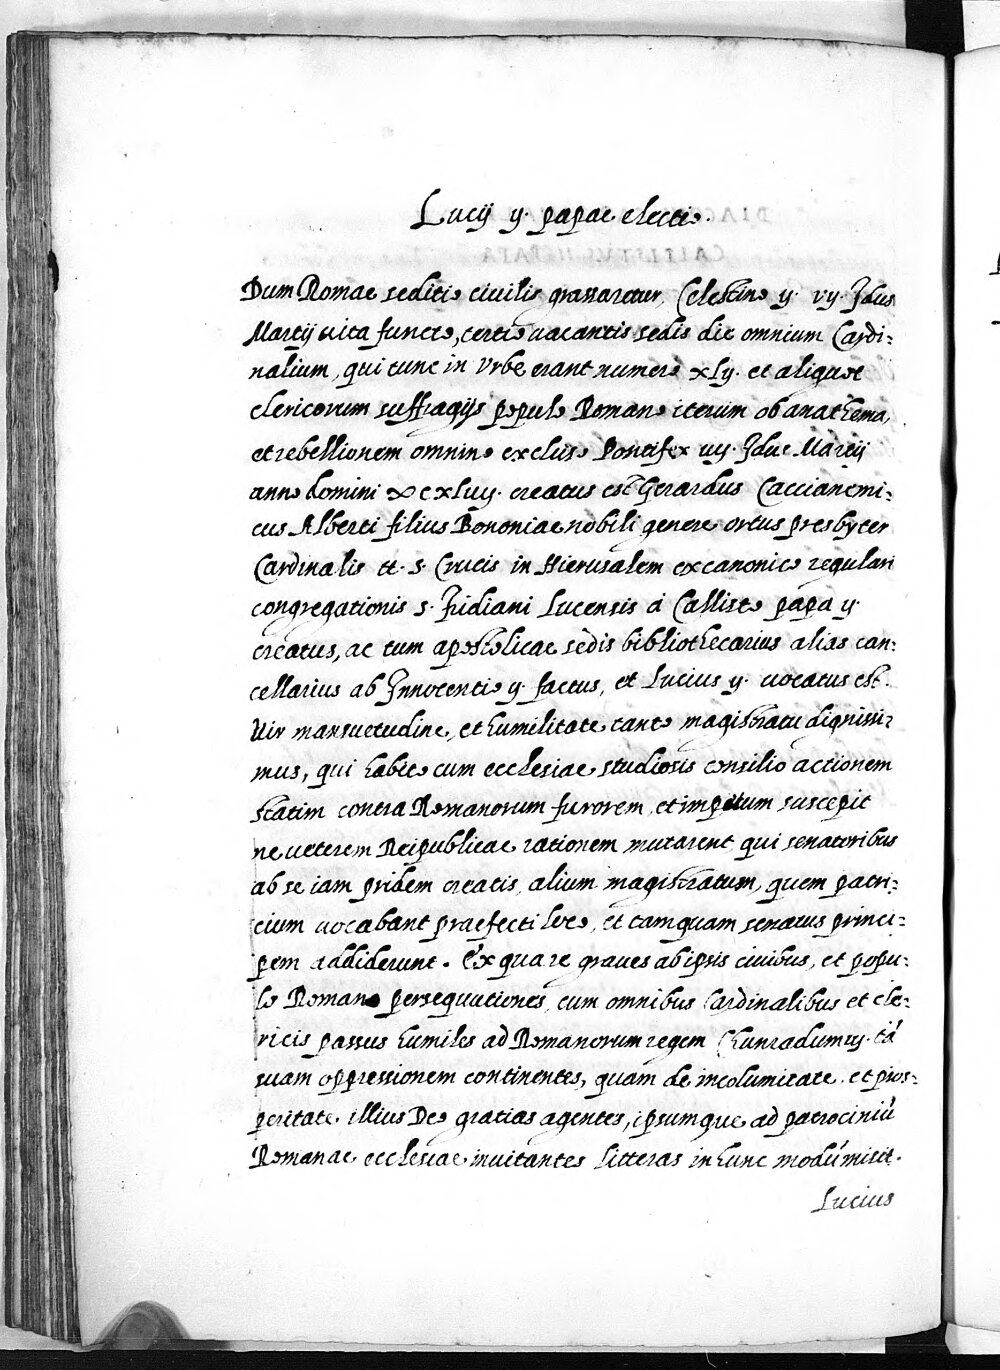 Lucij ij. papae electio.
Dum Romae seditio civilis grassaretur, Celestino ij. vij. Idus
Martij uita functo, tertio uacantis sedis die omnium Cardi-
nalium, qui tunc in Vrbe erant numero xLij. et aliquot
clericorum suffragijs populo Romano iterum ob anathema,
et rebellionem omnino excluso Pontifex iiij. Idus Martij
anno domini creatus est Gerardus Caccianemi-
cus Alberti filius Bononiae nobili genere ortus presbyter
Cardinalis tt. s. Crucis in Hierusalem ex canonico regulari
congregationis s. Fridiani Lucensis à Callisto papa ij.
creatus, ac tum apostolicae sedis bibliothecarius alias can-
cellarius ab Innocentio ij. factus, et Lucius ij. uocatus est.
Vir mansuetudine, et humilitate tanto magistratu dignissi-
mus, qui habito cum ecclesiae studiosis consilio actionem
statim contra Romanorum furorem, et impetum suscepit
ne ueterem Reipublicae rationem mutarent, qui senatoribus
ab se iam pridem creatis, alium magistratum, quem patri-
cium uocabant praefecti loco, et tamquam senatus princi-
pem addiderunt. Ex qua re graues ab ipsis ciuibus, et popu-
lo Romano persequutiones, cum omnibus Cardinalibus et cle-
ricis passus humiles ad Romanorum regem Chunradum iij. tā
suam oppressionem continentes, quam de incolumitate, et pros-
peritate illius Deo gratias agentes, ipsumque ad patrociniū
Romanae ecclesiae inuitantes litteras in hunc modū misit.
Lucius